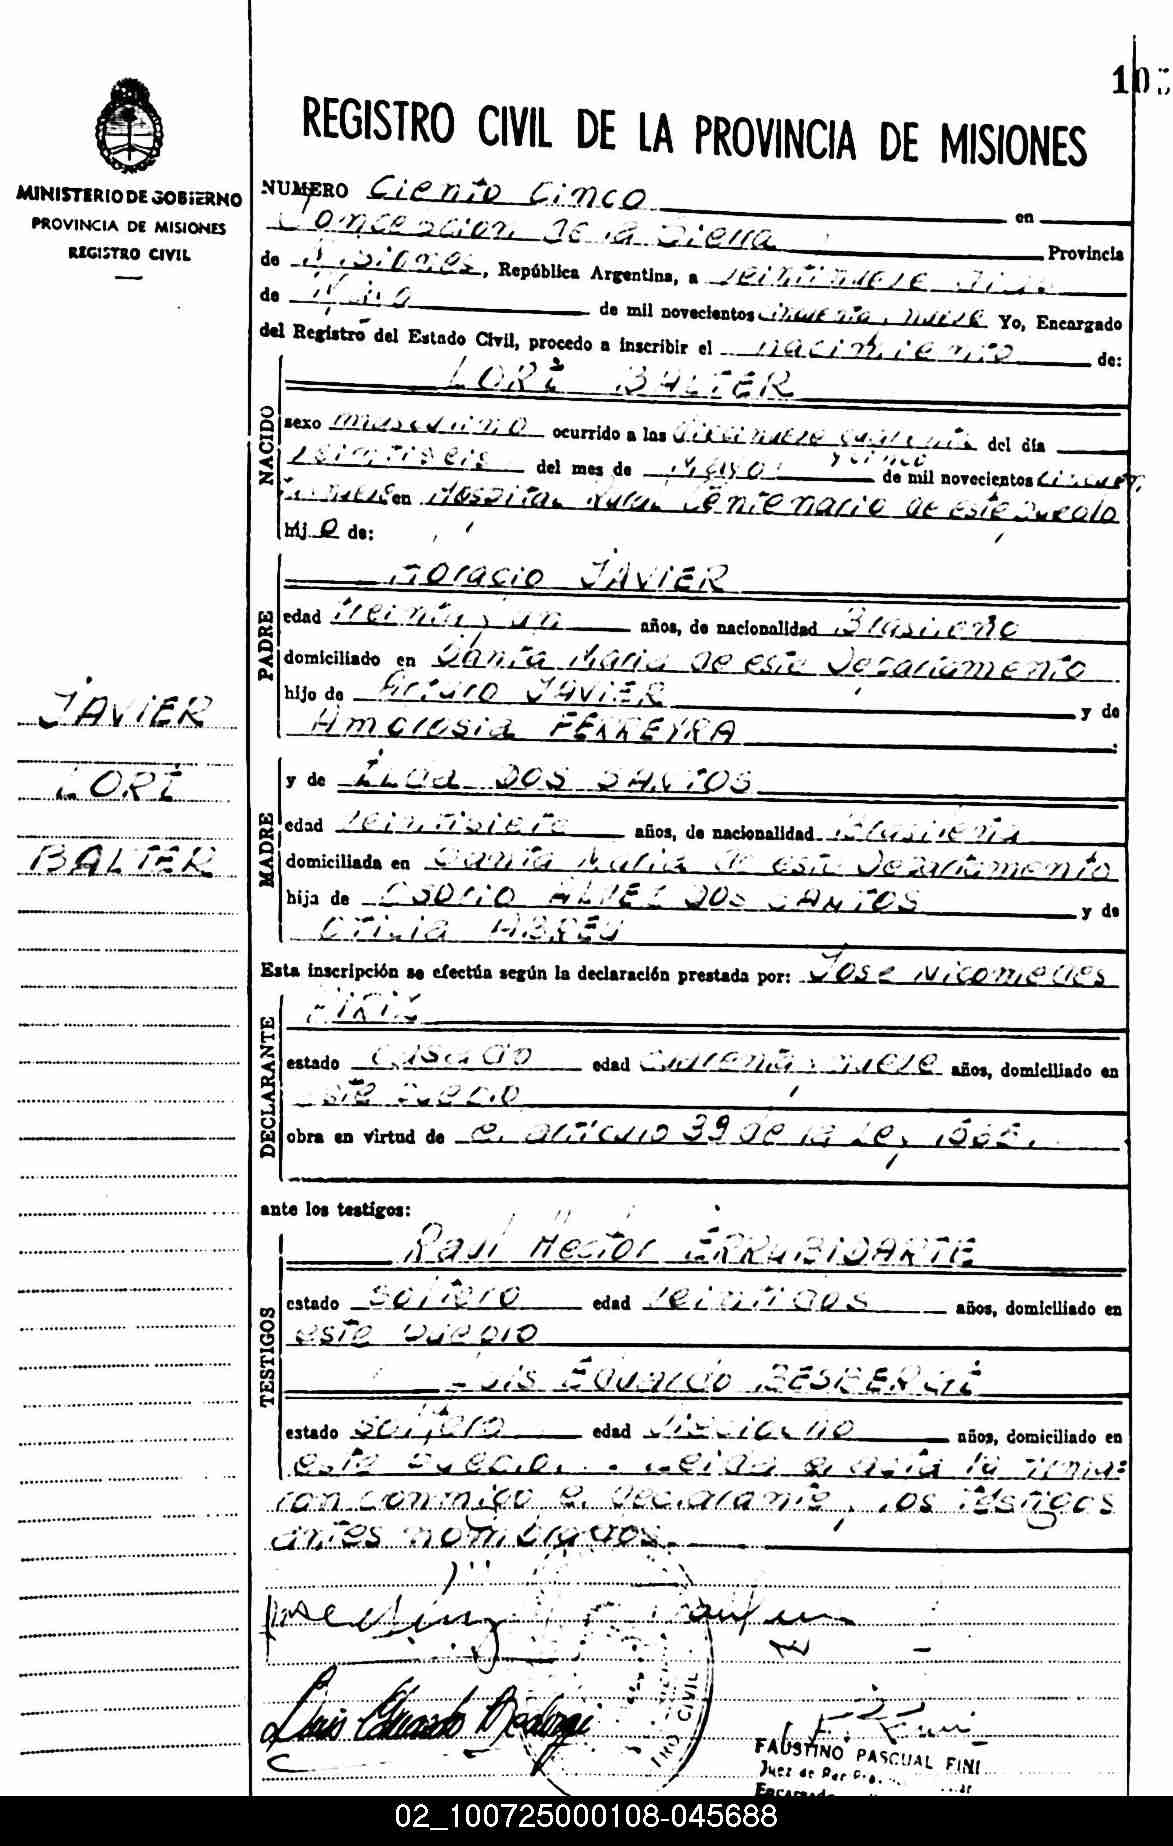 105
REGISTRO CIVIL DE LA PROVINCIA DE MISIONES
MINISTERIO DE GOBIERNO
PROVINCIA DE MISIONES
REGISTRO CIVIL
JAVIER
LORI
BALTER
NUMERO Ciento Cinco en
Concepcion de la Sierra Provincia
de Misiones, República Argentina, a veintinueve dias
de Mayo de mil novecientos cincuenta y nueve Yo, Encargado
del Registro del Estado Civil, procedo a inscribir el nacimiento de:
NACIDO
LORI BALTER
sexo masculino ocurrido a las diecinueve cuarenta y cinco del día
veintiseis del mes de Mayo de mil novecientos cincuen
ta y nueve en Hospital Rural Centenario de este pueblo
hijo de:
PADRE
Horacio JAVIER
edad treinta y un años, de nacionalidad Brasileño
domiciliado en Santa Maria de este Departamento
hijo de Arturo JAVIER y de
Ambrosia FERREYRA
MADRE
y de Ilda DOS SANTOS
edad veintisiete años, de nacionalidad Brasileña
domiciliada en Santa Maria de este Departamento
hija de Osorio ALVEZ DOS SANTOS y de
Otilia ABREU
Esta inscripción se efectúa según la declaración prestada por: Jose Nicomedes
DECLARANTE
PIRIZ
estado Casado edad cuarenta y nueve años, domiciliado en
este pueblo
obra en virtud de el articulo 39 de la Ley 1565.
ante los testigos:
TESTIGOS
Raul Hector ERRUBIDARTE
estado Soltero edad veintidos años, domiciliado en
este pueblo
Luis Eduardo BESBERGI
estado Soltero edad dieciocho años, domiciliado en
este pueblo. Leida el acta la firma=
ron conmigo el declarante y los testigos
antes nombrados.
Luis Eduardo
CIVIL
FAUSTINO PASCUAL FINI
Juez de Paz
Encargado
02_100725000108-045688